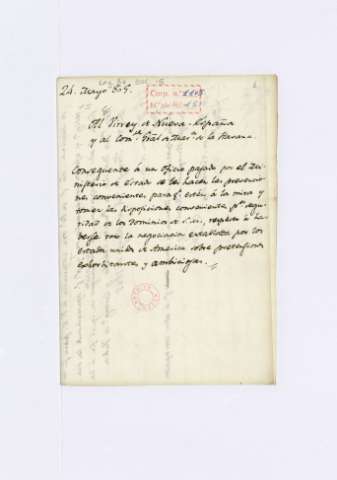 24. Mayo 805.
Al Virrey de Nueva España
y al Com.te Gral de la Havana.
Consequente á un oficio pasado por el Mi-
nisterio de Estado se les hacen las prevencio-
nes convenientes para q.e estén á la mira y
tomen las disposiciones convenientes p.a segu-
ridad de los Dominios de S.M. respecto á ha-
berse roto la negociacion entablada por los
estados unidos de America sobre pretensiones
exhorbitantes y ambiciosas.